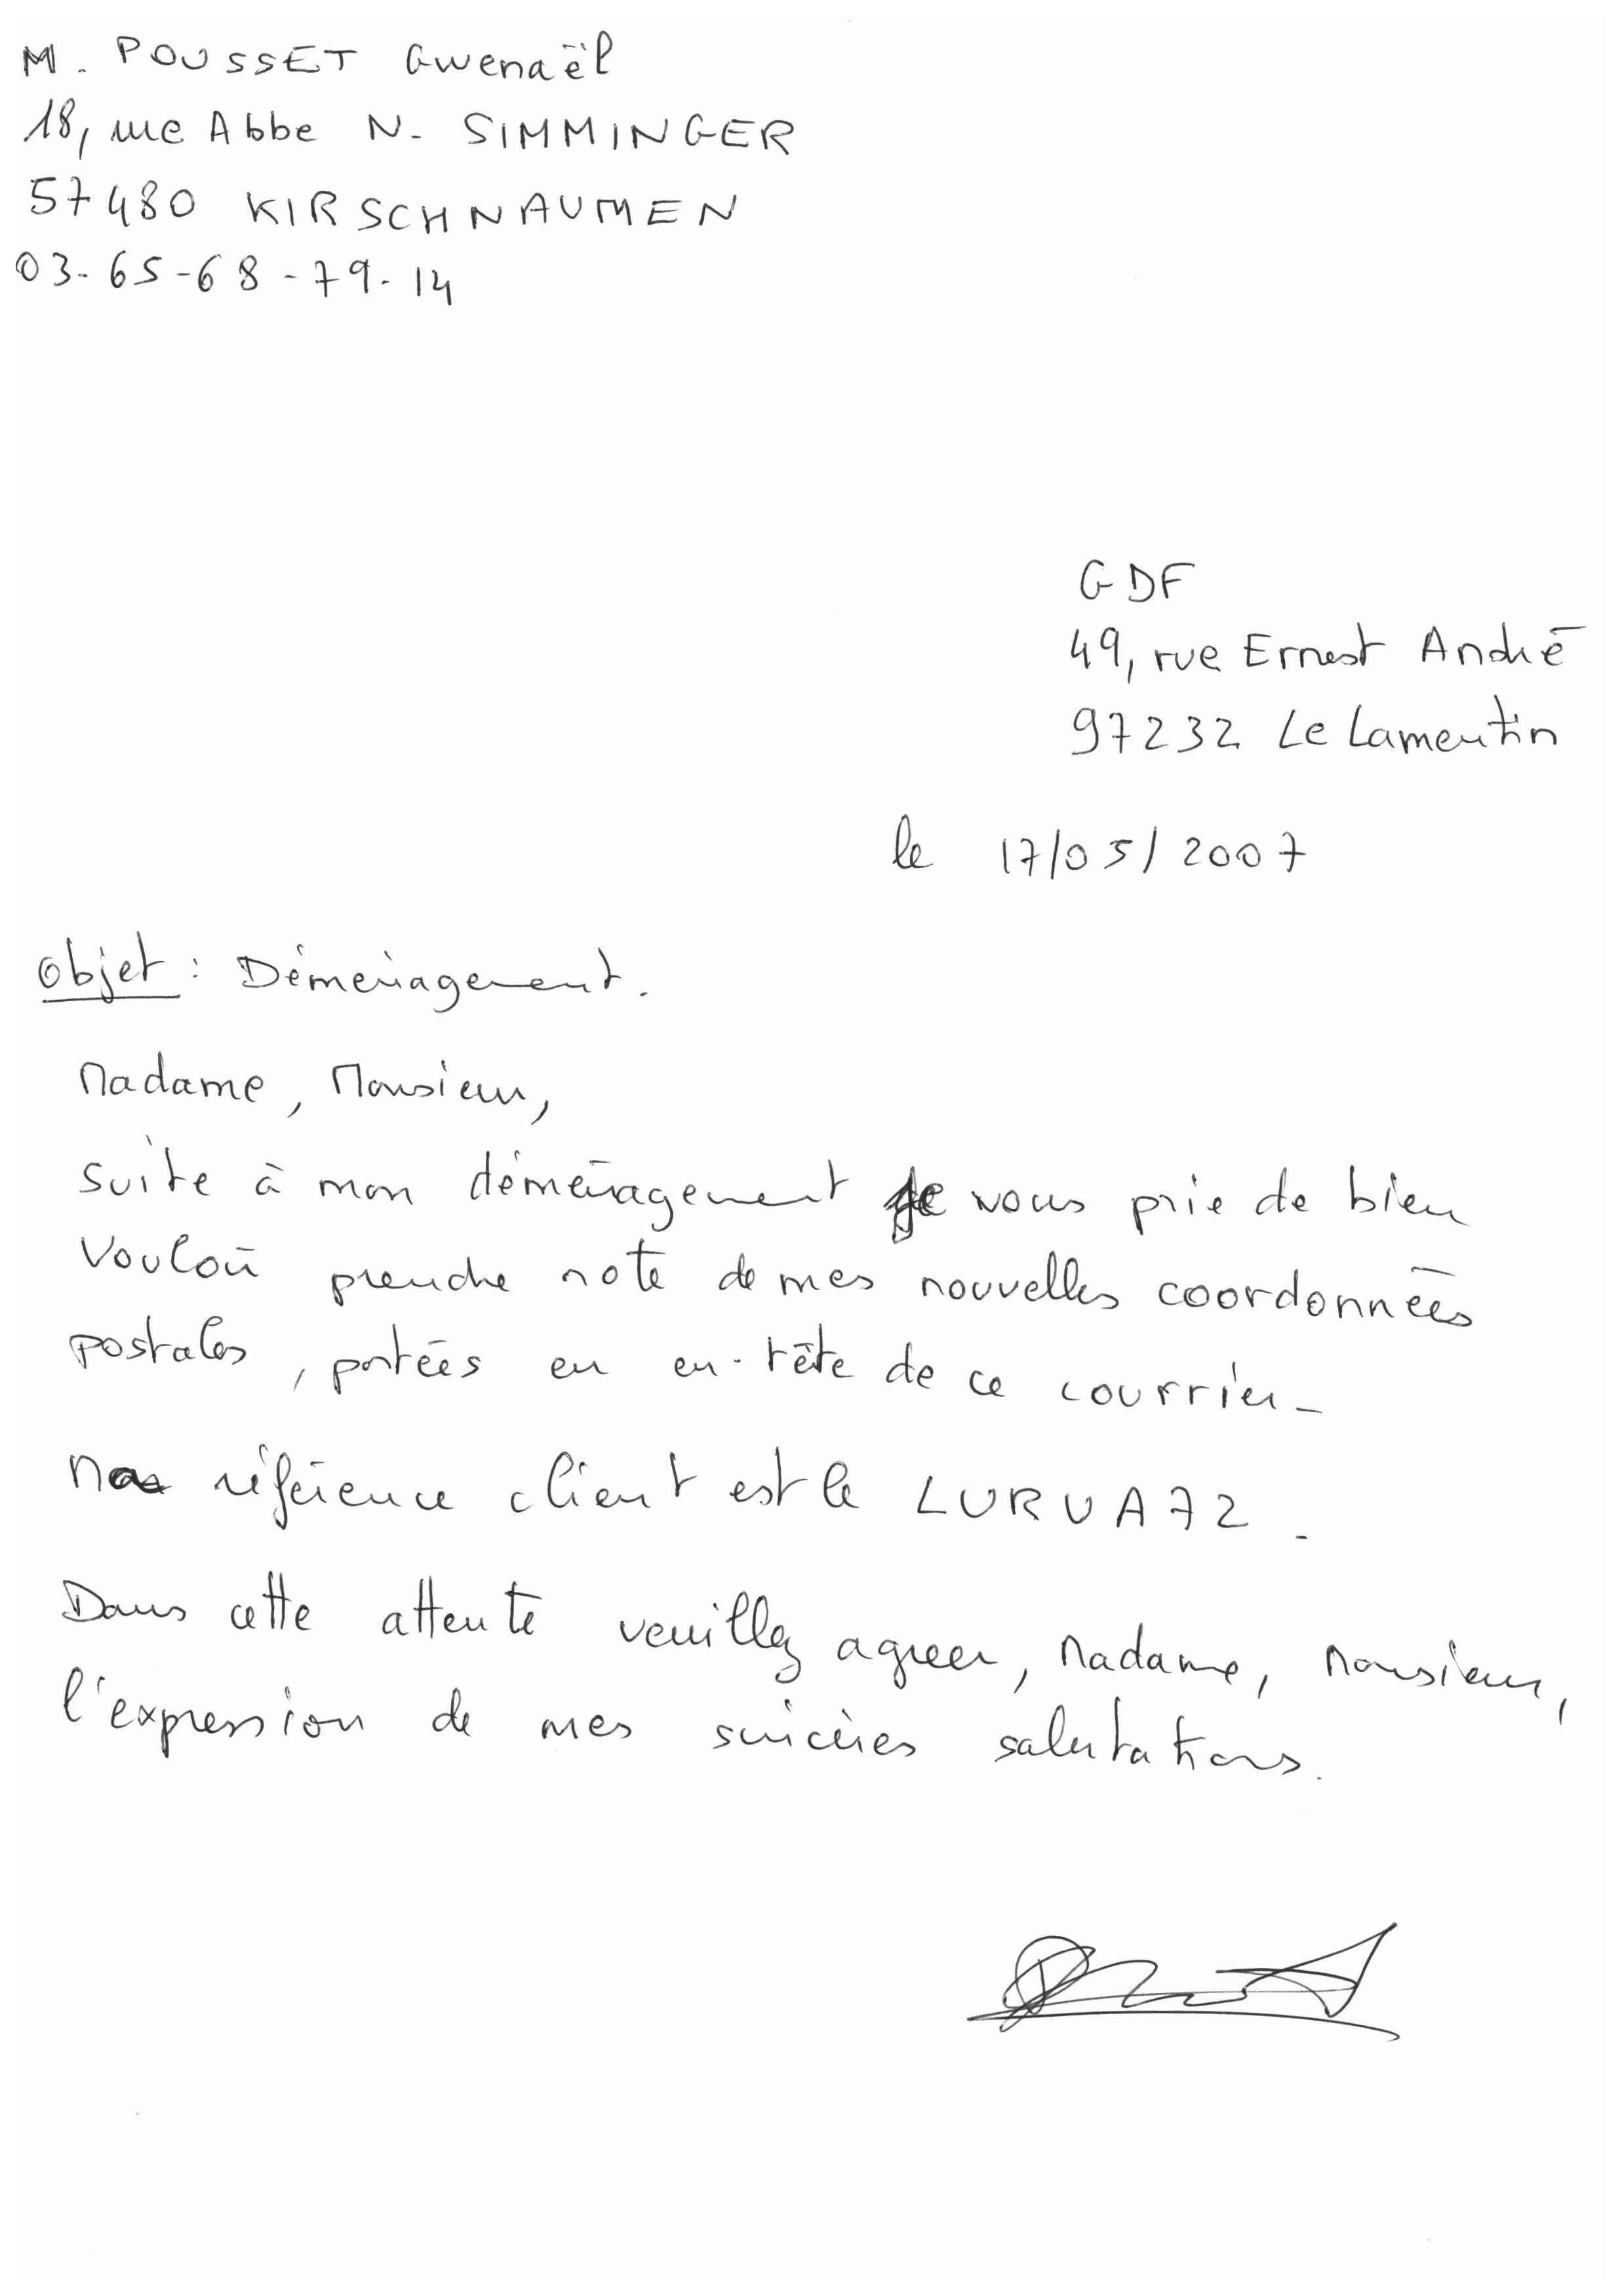 M. POUSSET Gwenaël
18, rue Abbe N. SIMMINGER
57480 KIRSCHNAUMEN
03-65-68-79-14
GDF
49, rue Ernest André
97232 Le Lamentin
le 17/05/2007
Objet : Déménagement.
Madame, Monsieur,
suite à mon déménagement je vous prie de bien
vouloir prendre note de mes nouvelles coordonnées
postales, portées en en-tête de ce courrier.
Ma référence client est le LURUA72.
Dans cette attente veuillez agreer, Madame, Monsieur,
l'expression de mes sincères salutations.